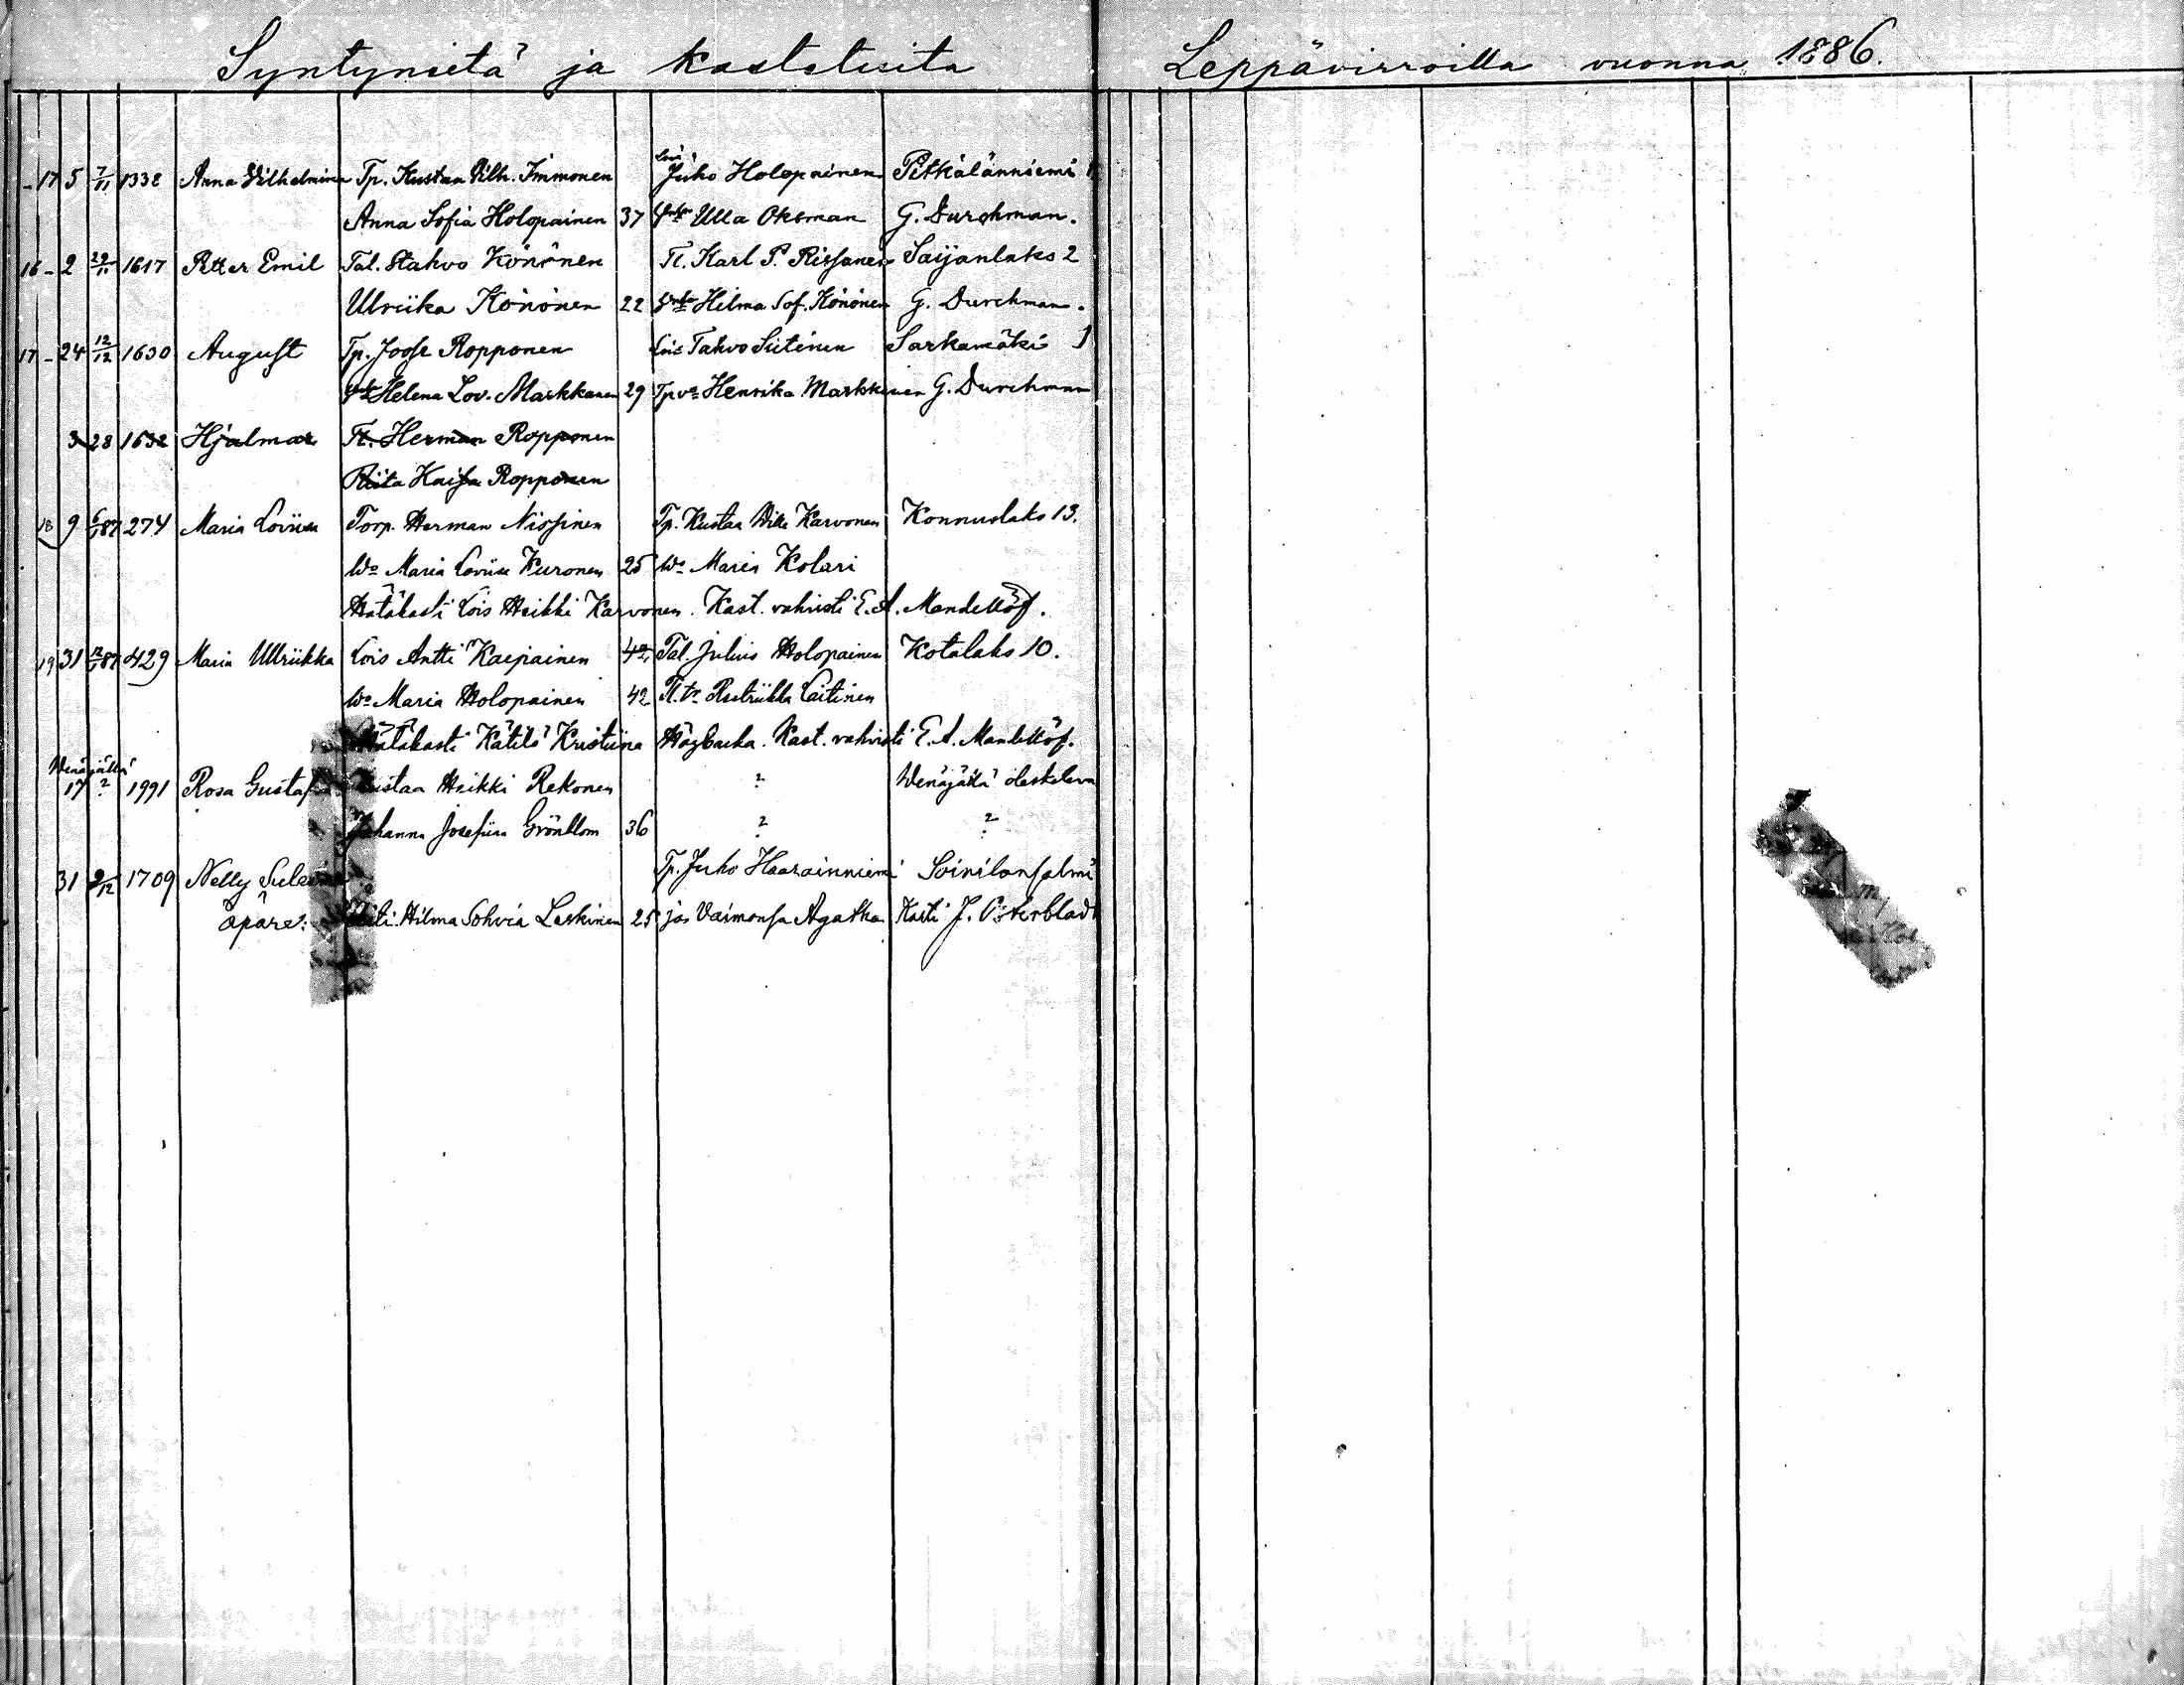 Syntyneitä ja kastetuita Leppävirroilla vuonna 1886.
-17 5 7/11 1338 Anna Vilhelmina Tp. Kustaa Vilh. Immonen Lois Juho Holopainen Pitkälänniemi
Anna Sofia Holopainen 37 Ulla Oksman G. Durchman.
16- 2 29/11 1617 Petter Emil Tal. Stahvo Könönen Tl. Karl P. Rissanen Saijanlaks 2
Ulriika Könönen 22 Hilma Sof. Könönen G. Durchman.
17- 24 12/12 1630 August Tp. Joose Ropponen Lois Tahvo Siitinen Sarkamäki 1
Helena Lov. Markkanen 29 Tp vo Henrika Markkanen G. Durchman
3 28 1632 Hjalmar Tl. Herman Ropponen
Riita Kaisa Ropponen
18 9 6/1 87 274 Maria Loviisa Torp. Herman Nissinen Tp. Kustaa Wille Karvonen Konnuslaks 13.
Wo Maria Loviisa Kuronen 25 Wo Maria Kolari
Hätäkasti Lois Heikki Karvonen. Kast. vahvisti E. A. Mandellöf.
19 31 87 429 Maria Ulriikka Lois Antti Kaipainen 42, Tal. Julius Holopainen Kotalaks 10.
Wo Maria Holopainen 42 Tl. tr Laitinen
Hätäkasti Kätilö Kristiina Högbacka. Kast. vahvisti E. A. Mandellöf.
Wenäjällä
17 ? 1991 Rosa Gustafva Kustaa Heikki Rekonen ? Venäjällä oleskeleva
Johanna Josefiina Grönblom 36 ? ?
31 9/12 1709 Nelly Tp. Juho Haarainniemi Soinilansalmi
äpäre: Äiti: Hilma Sohvia Leskinen 25 ja Vaimonsa Agatha Kasti J. Österbladt